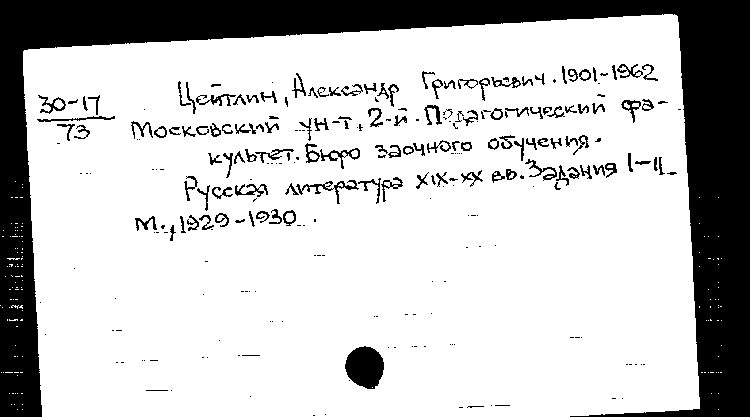 30-17
73
Цейтлин, Александр Григорьевич. 1901-1962
Московский ун-т, 2-й. Педагогический фа-
культет. Бюро заочного обучения.
Русская литература XIX-XX вв. Задания 1-4.
М., 1929-1930.